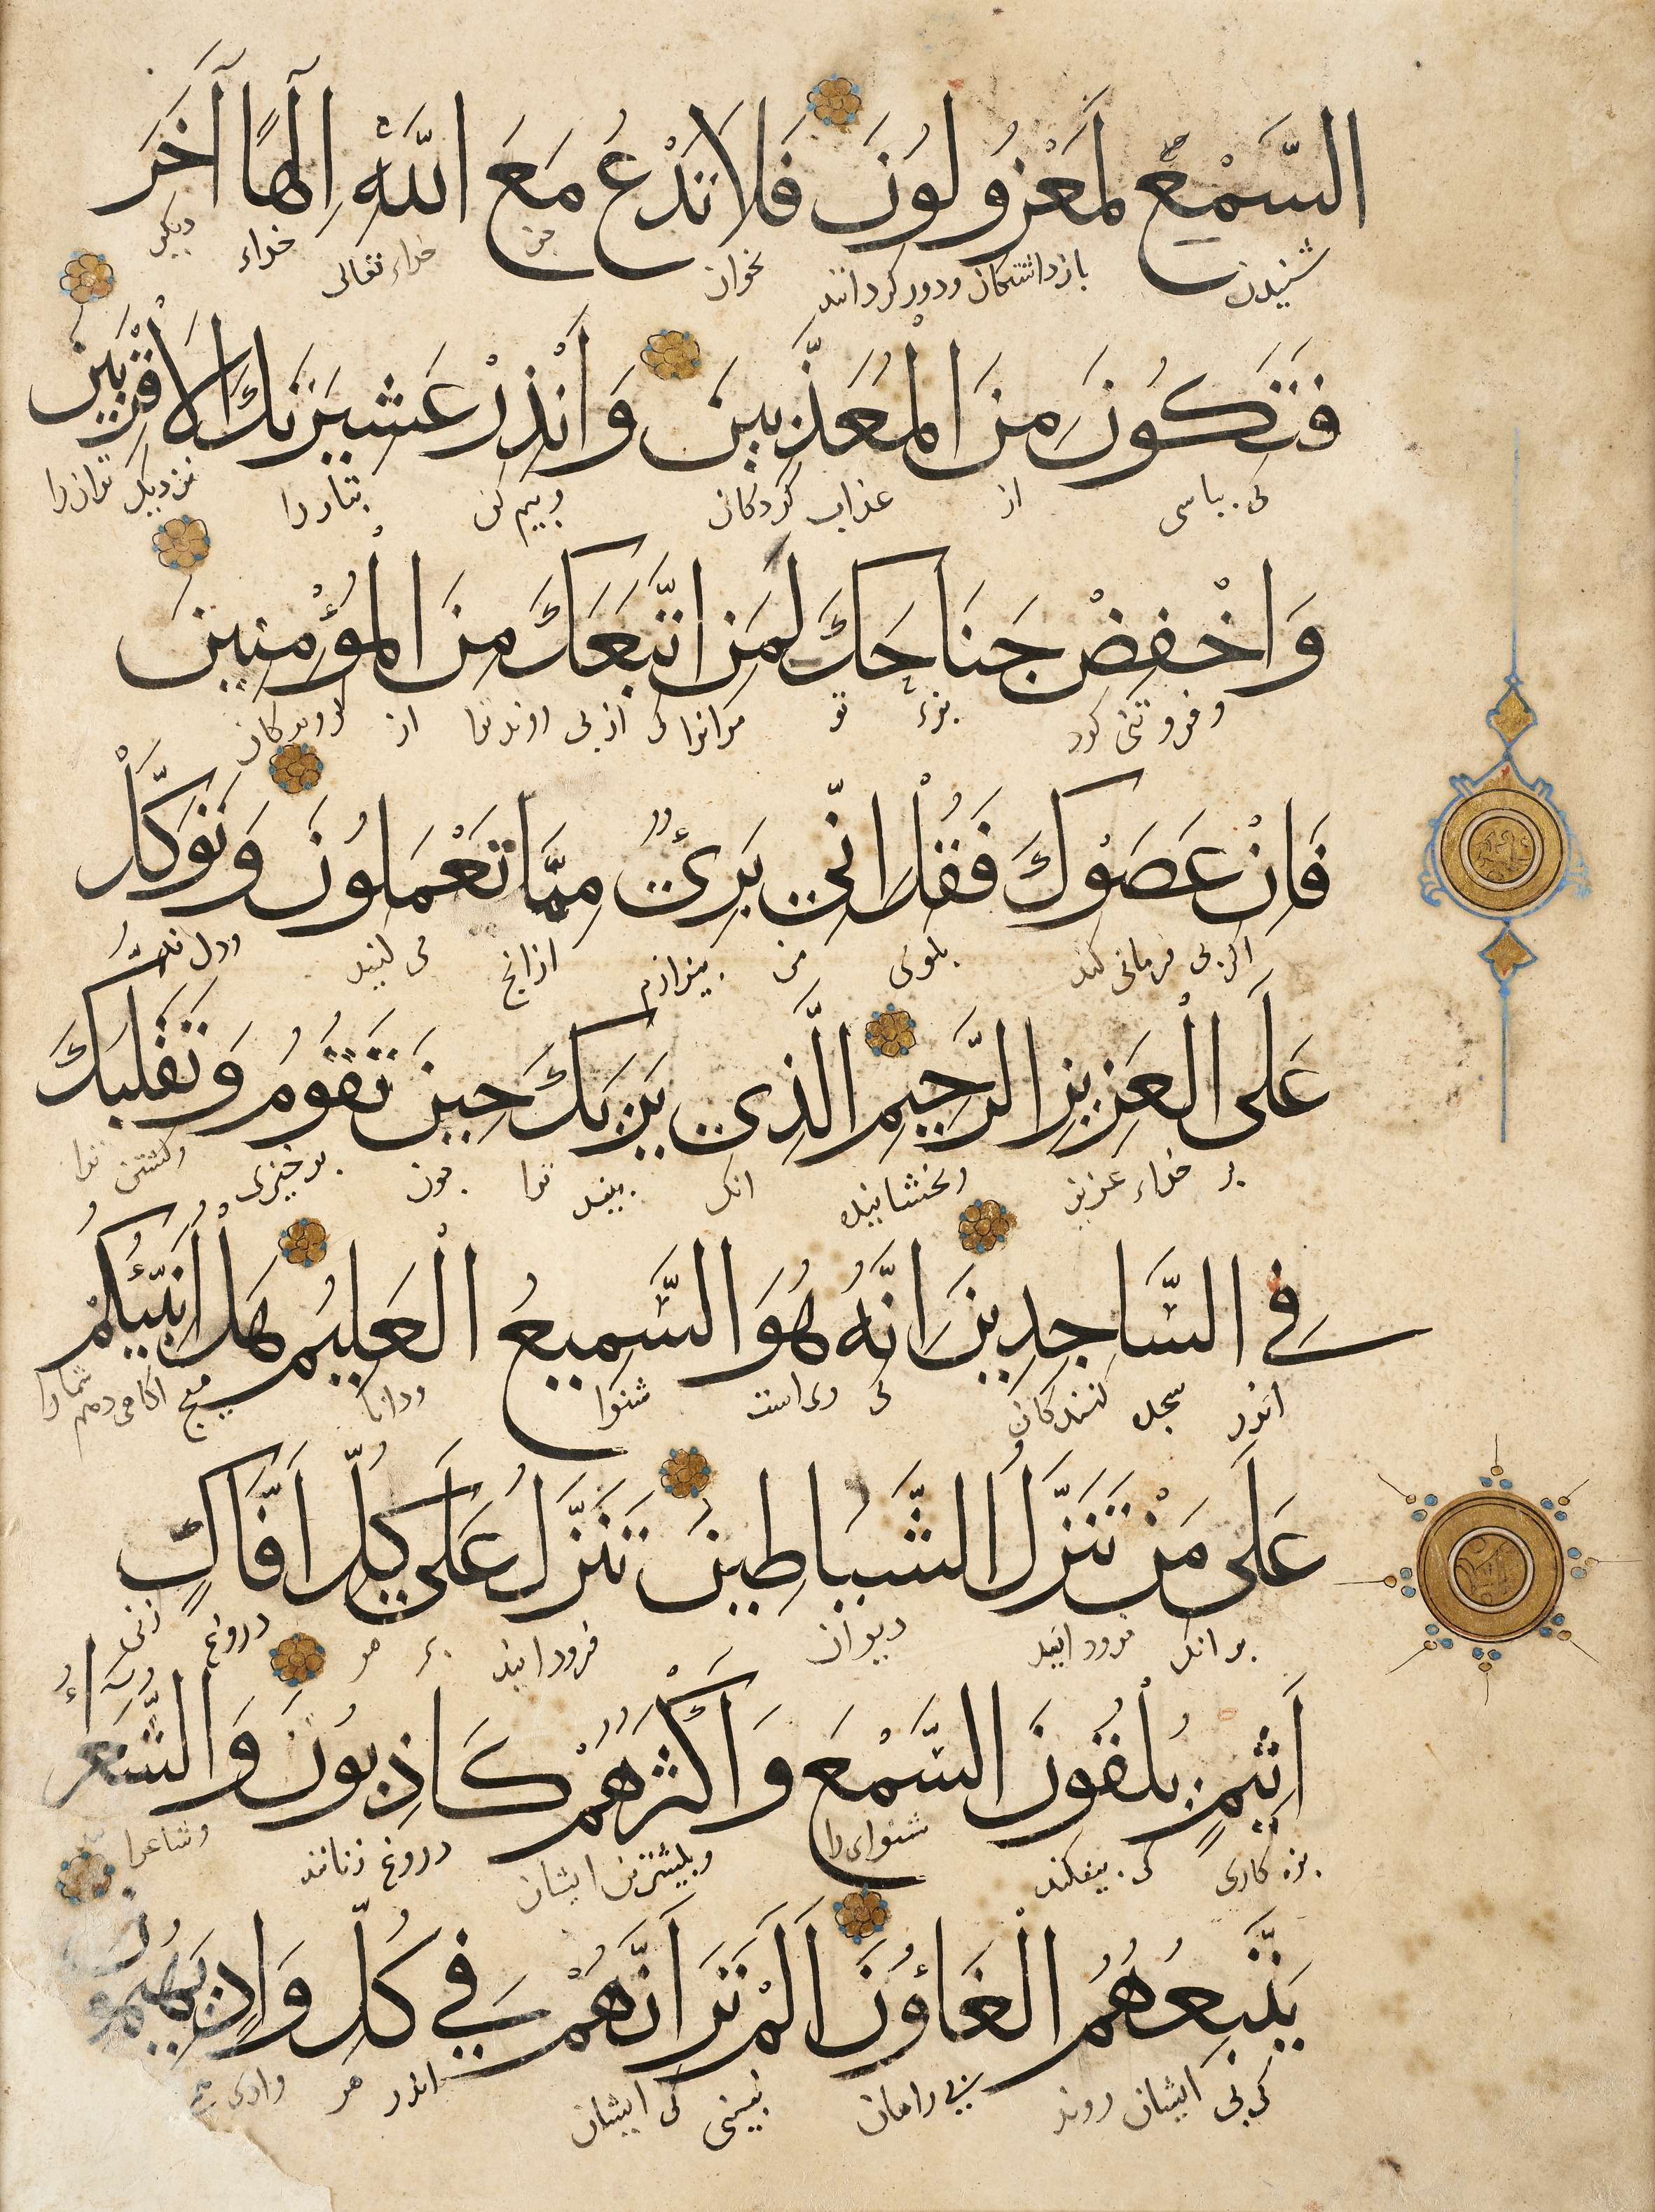 السَّمْعِ لَمَعْزُولُونَ فَلَا تَدْعُ مَعَ اللَّهِ إِلَٰهًا آخَرَ
شنیدن بازداشتکان ودور کردانند نخوان خداء تعالی خداء دیکر
فَتَكُونَ مِنَ الْمُعَذَّبِينَ وَأَنْذِرْ عَشِيرَتَكَ الْأَقْرَبِينَ
کی بباسی از عذاب کردکان وبیم کن تبار را نزدیک
وَاخْفِضْ جَنَاحَكَ لِمَنِ اتَّبَعَكَ مِنَ الْمُؤْمِنِينَ
و فرو تو از بی روند ترا از کروندکان
فَإِنْ عَصَوْكَ فَقُلْ إِنِّي بَرِيءٌ مِمَّا تَعْمَلُونَ وَتَوَكَّلْ
اکر بی فرمانی کنند بکوی من بیزارم ازانچ می کنید ودل
عَلَى الْعَزِيزِ الرَّحِيمِ الَّذِي يَرَاكَ حِينَ تَقُومُ وَتَقَلُّبَكَ
بر خداء عزیز وبخشاینده انک بیند ترا جون برخیزی وکشتن ترا
فِي السَّاجِدِينَ إِنَّهُ هُوَ السَّمِيعُ الْعَلِيمُ هَلْ أُنَبِّئُكُمْ
اندر سجده کنندکان کی وی است شنوا ودانا هیچ اکاهی دهم شما را
عَلَى مَنْ تَنَزَّلُ الشَّيَاطِينُ تَنَزَّلُ عَلَى كُلِّ أَفَّاكٍ
بر انک فرود ایند دیوان فرود ایند بر هر دروغ زنی
أَثِيمٍ يُلْقُونَ السَّمْعَ وَأَكْثَرُهُمْ كَاذِبُونَ وَالشُّعَرَاءُ
بزه کاری کی بیفکنند شنوای را وبیشترین ایشان دروغ زنانند وشاعران
يَتَّبِعُهُمُ الْغَاوُونَ أَلَمْ تَرَ أَنَّهُمْ فِي كُلِّ وَادٍ يَهِيمُونَ
کی بی ایشان روند بی راهان نبینی کی ایشان اندر هر وادی